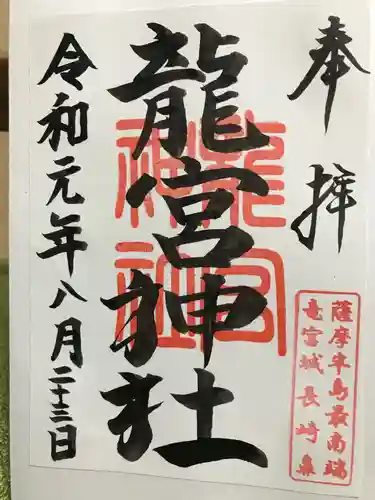 奉拝
薩摩半島最南端
竜宮城長崎鼻
龍宮神社
龍宮
神社
令和元年八月二十三日